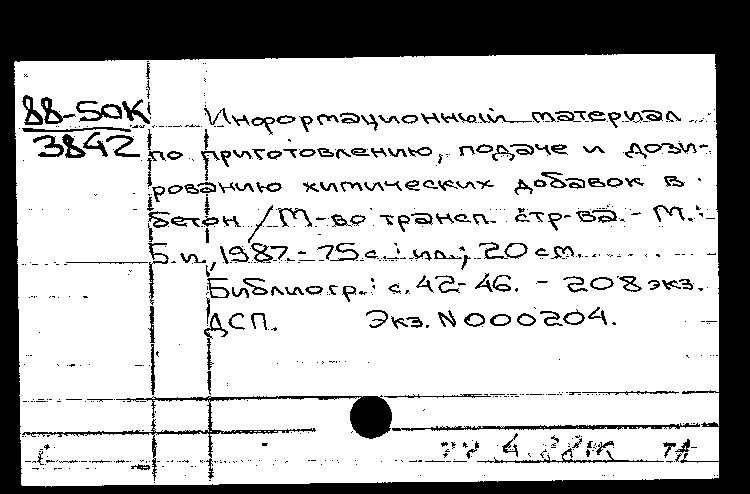 88-50К
3842
Информационный материал
по приготовлению, подаче и дози-
рованию химических добавок в
бетон / М-во трансп. стр-ва. - М.:
Б.и., 1987. - 75 с.: ил.; 20 см.
Библиогр.: с. 42-46. - 208 экз.
ДСП. Экз. N 000204.